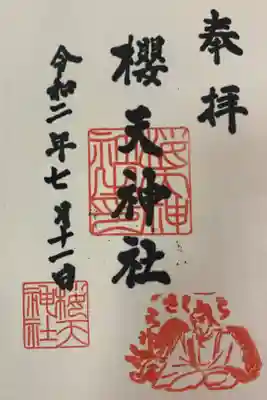 奉拝
櫻天神社
令和二年七月十一日
桜天神社印
桜天神社
さくら